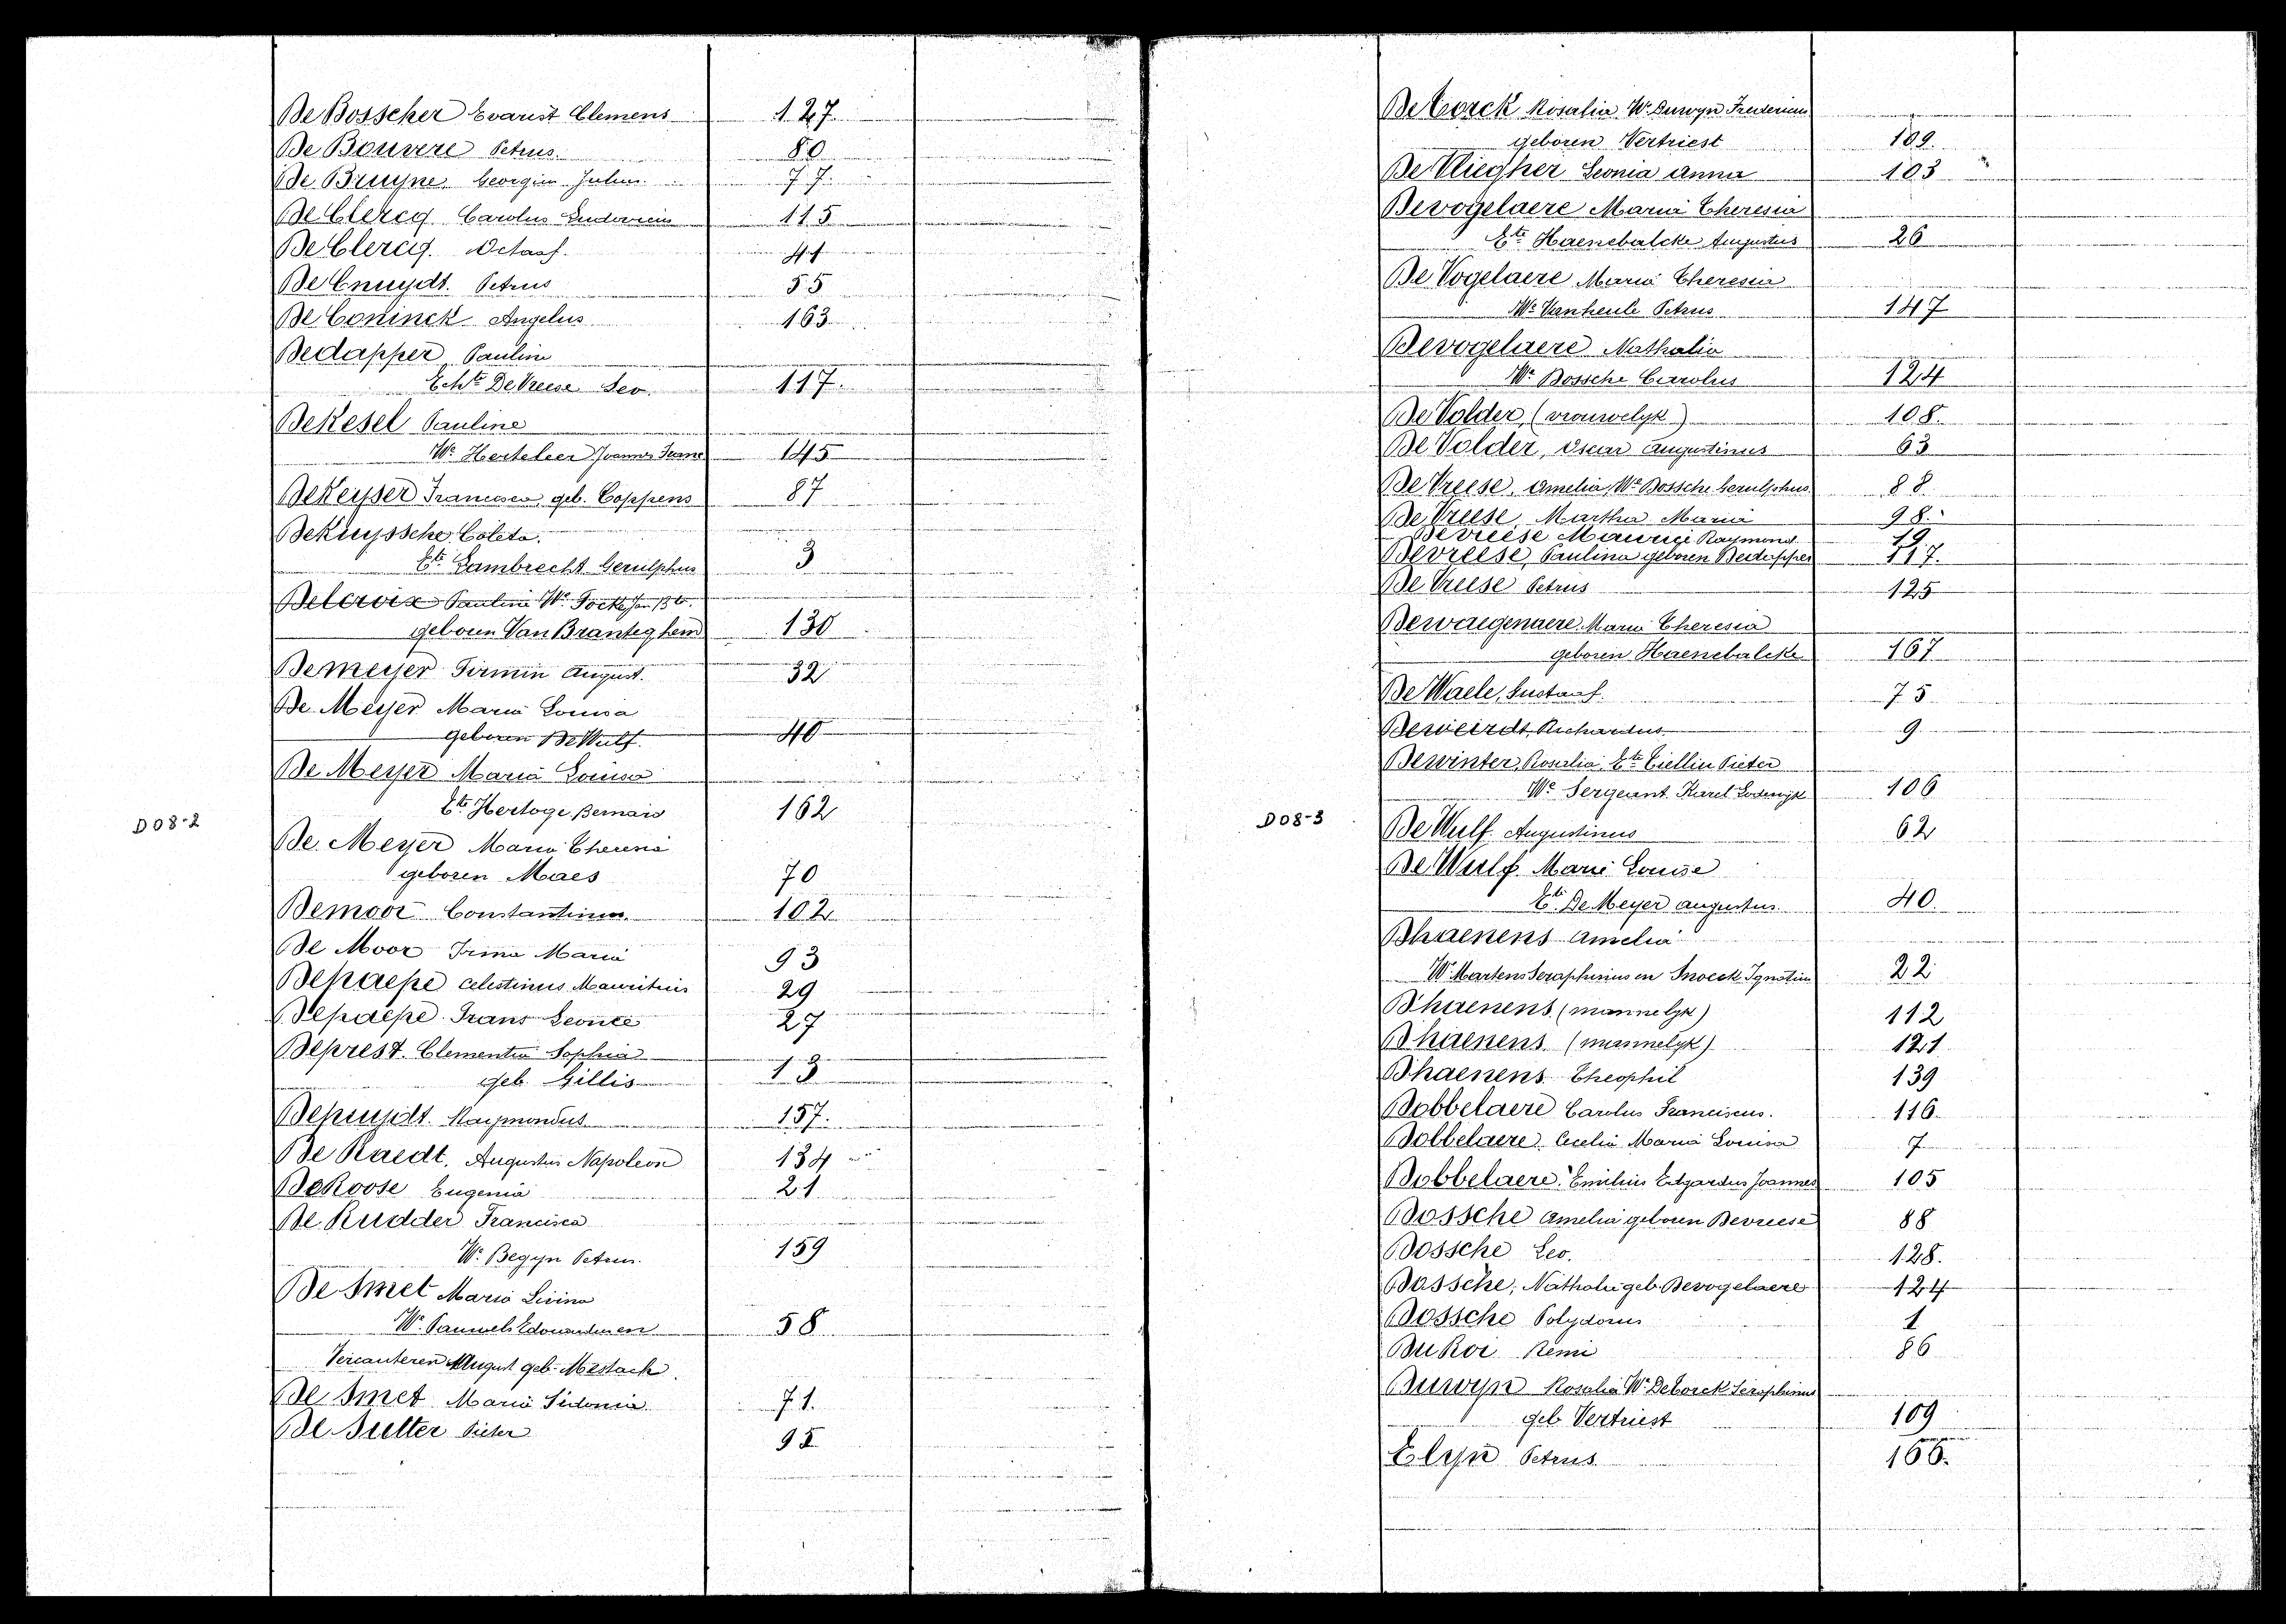 De Bosscher Evarist Clemens 127
De Bouvere Petrus 80
De Bruyne Georgius Julius 77
De Clercq Carolus Ludovicus 115
De Clercq. Octaaf. 41
De Cnuydt. Petrus 55
De Coninck Angelus 163
Dedapper Pauline
Echte De Vreese Leo. 117.
DeKesel Pauline
We Herteleer Joannes Franc 145
DeKeyser Francisca geb. Coppens 87
DeKuyssche Coleta.
Ete Lambrecht Gerulphus 3
Delcroix Paulina We Focke Jan Bte.
geboren Van Branteghem 130
Demeyer Firmin August. 32
De Meyer Maria Louisa
geboren De Wulf. 40
De Meyer Maria Louisa
Ete Hertoge Bernard 162
D08-2
De Meyer Maria Theresia
geboren Maes 70
Demoor Constantinus. 102
De Moor Irma Maria 93
Depaepe Celestinus Mauritius 29
Depaepe Frans Leonce 27
Deprest. Clementia Sophia
geb. Gillis 13
Depuydt. Raymondus 157.
De Raedt. Augustus Napoleon 134
DeRoose Eugenia 21
De Rudder Francisca
We Begyn Petrus. 159
De Smet Maria Livina
We Pauwels Edouardus en 58
Vercauteren August geb. Mestach.
De Smet Maria Sidonia. 71.
De Sutter Pieter 95
De Vorck Rosalia We Duwyn
geboren Vertriest 109.
De Vliegher Leonia Anna 103
Devogelaere Maria Theresia
Ete Haenebalcke Augustus 26
De Vogelaere Maria Theresia
We Vanheule Petrus 147
Devogelaere Nathalia
We Dossche Carolus 124
De Volder (vrouwelyk) 108.
De Volder, Oscar Augustinus 63
De Vreese, Amelia, We Dossche Gerulphus 88.
De Vreese, Martha Maria 98.
Devreese Maurice Raymond 19
Devreese, Paulina geboren Dedapper 117.
De Vreese Petrus 125
Dewaegenaere Maria Theresia
geboren Haenebalcke 167
De Waele, Gustaaf. 75
Deweirdt, Richardus 9
Dewinter, Rosalia, Ete Giellin Pieter
We Sergeant Karel Lodewijk 106
D08-3
De Wulf Augustinus 62
De Wulf. Marie Louise
Ete De Meyer Augustus 40.
Dhaenens Amelia
We Martens Seraphinus en Snoeck Ignatius 22
Dhaenens (mannelyk) 112
Dhaenens (mannelyk) 121
Dhaenens Theophil 139
Dobbelaere Carolus Franciscus. 116.
Dobbelaere. Cecelia Maria Louisa 7
Dobbelaere. Emilius Edgardus Joannes 105
Dossche Amelia geboren Devreese 88
Dossche Leo. 128.
Dossche, Nathalie geb. Devogelaere 124
Dossche Polydorus 1
DuRoi Remi 86
Duwyn Rosalia We Devorck Seraphinus
geb Vertriest 109
Elyn Petrus 166.